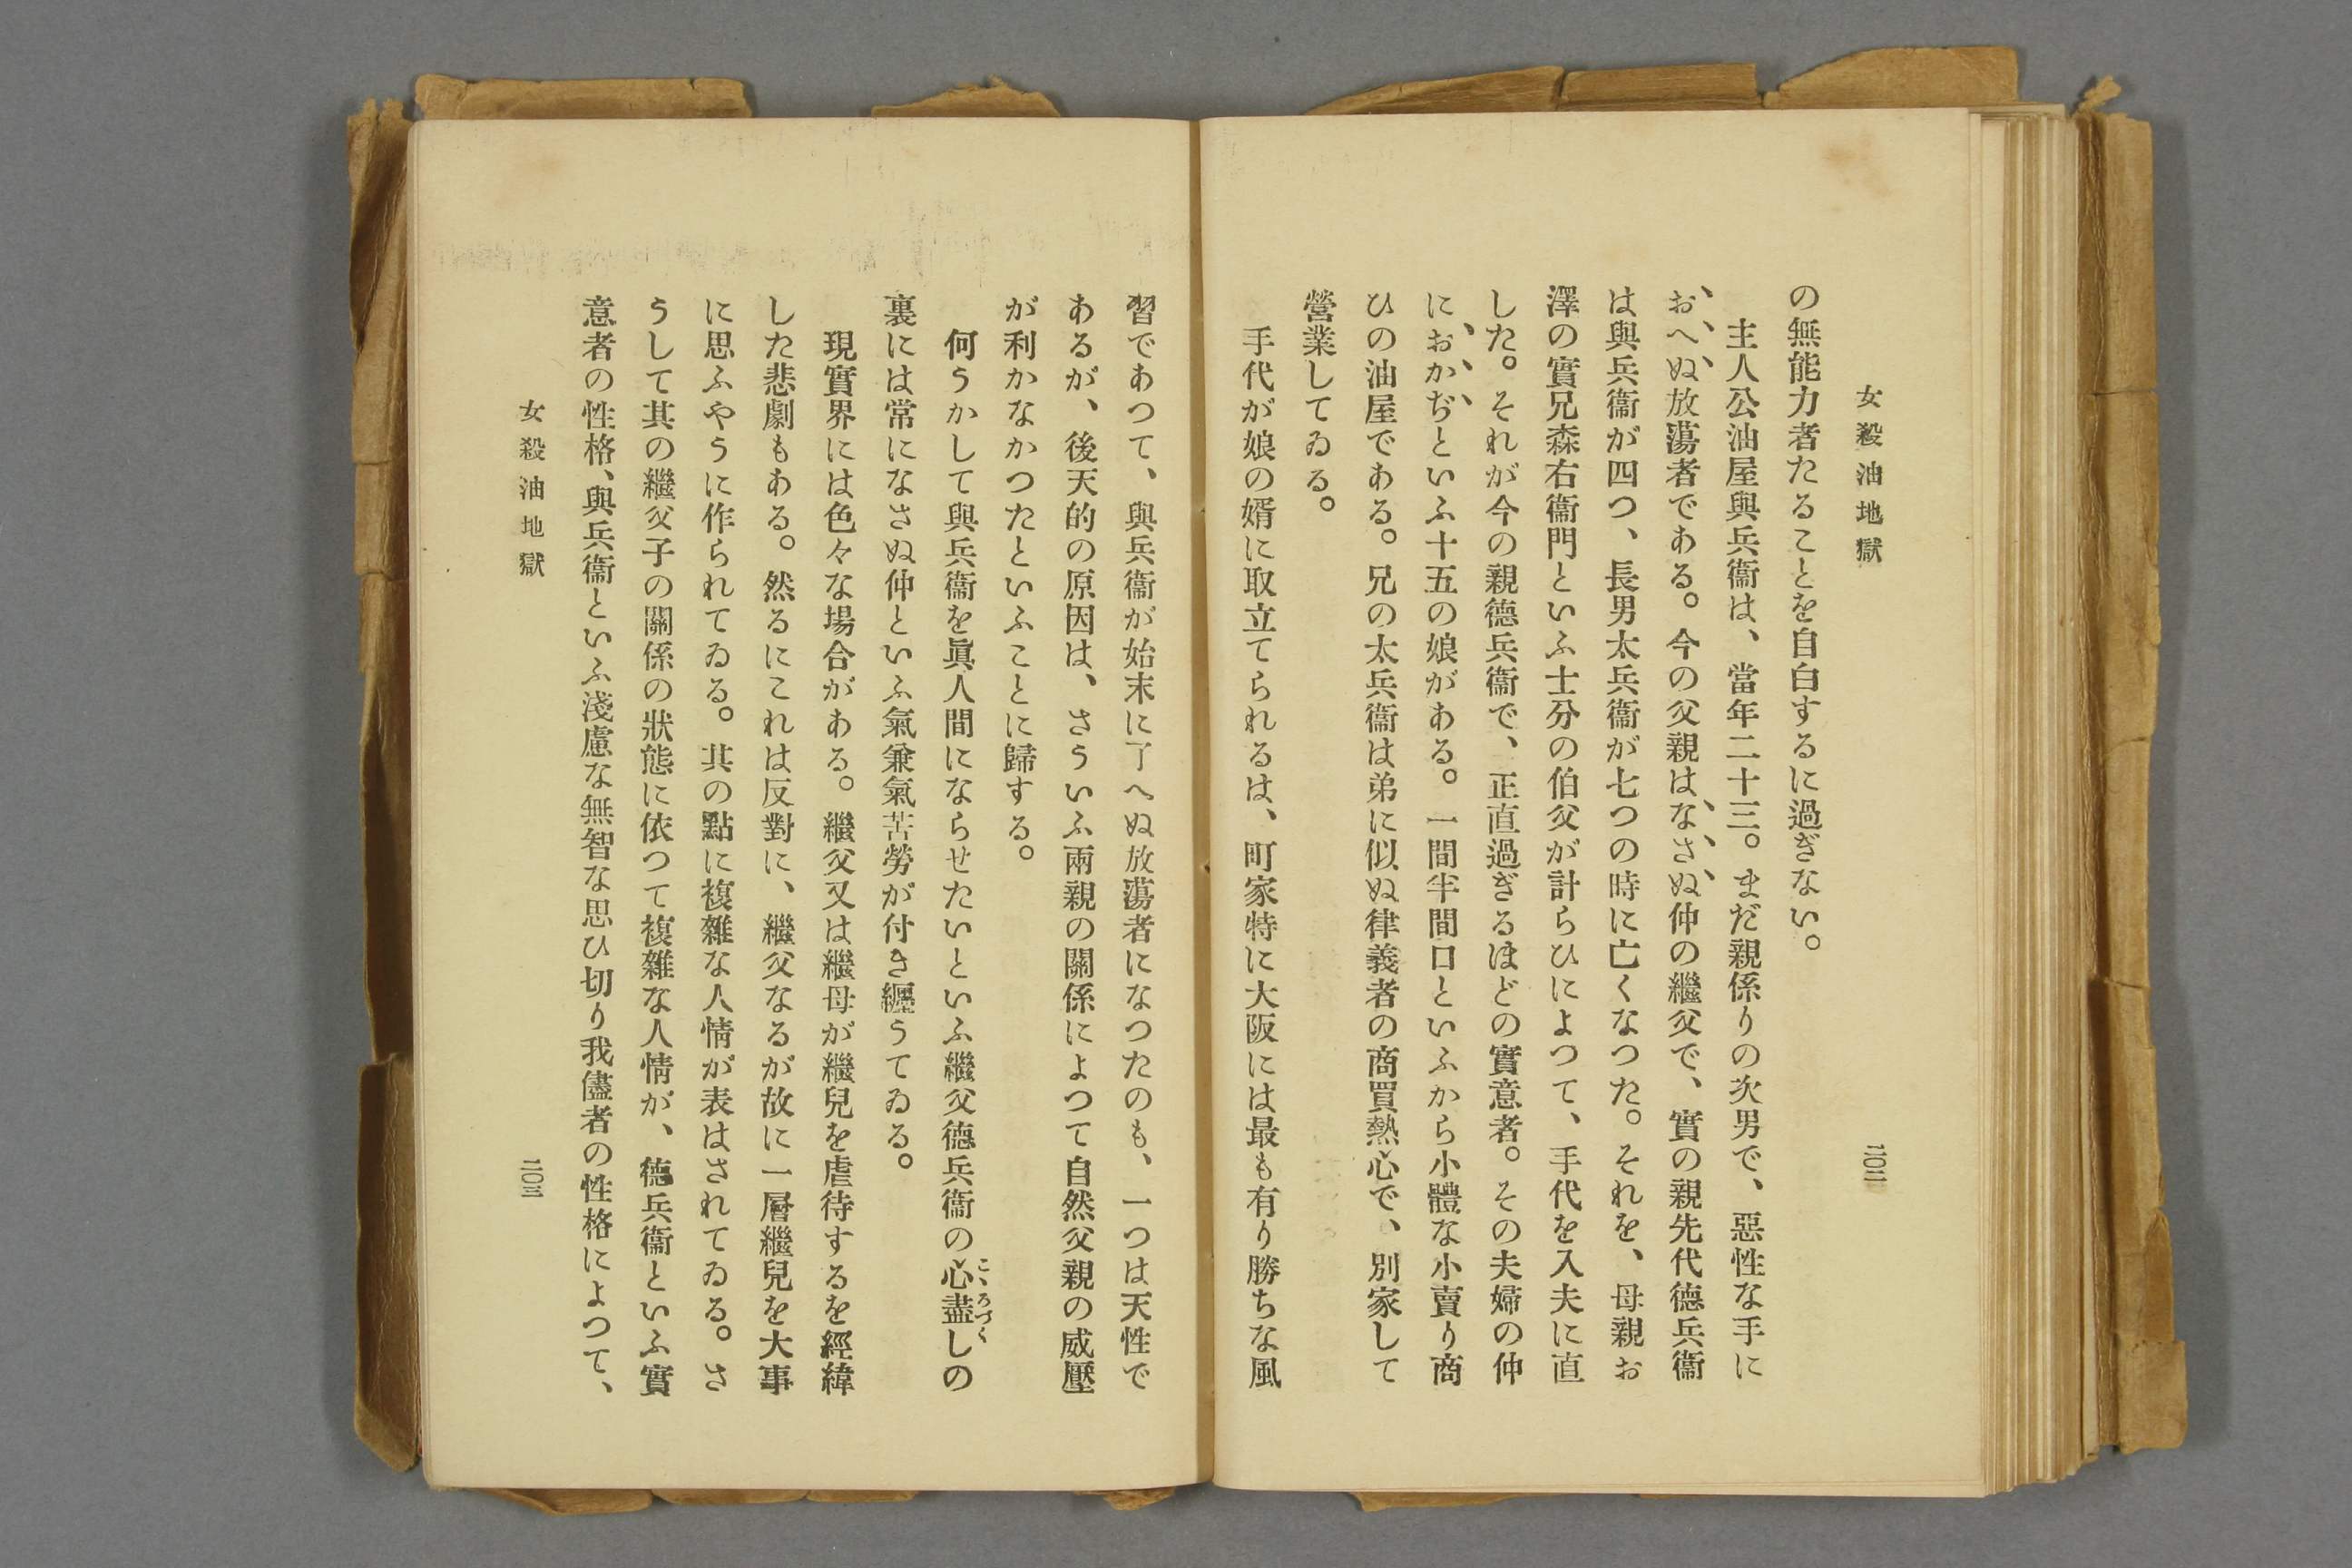 女殺油地獄
二〇二
の無能力者たることを自白するに過ぎない。
主人公油屋與兵衞は、當年二十三。まだ親係りの次男で、惡性な手に
おへぬ放蕩者である。今の父親はなさぬ仲の繼父で、實の親先代德兵衞
は與兵衞が四つ、長男太兵衞が七つの時に亡くなつた。それを、母親お
澤の實兄森右衞門といふ士分の伯父が計らひによつて、手代を入夫に直
した。それが今の親德兵衞で、正直過ぎるほどの實意者。その夫婦の仲
におかぢといふ十五の娘がある。一間半間口といふから小體な小賣り商
ひの油屋である。兄の太兵衞は弟に似ぬ律義者の商買熱心で、別家して
營業してゐる。
手代が娘の婿に取立てられるは、町家特に大阪には最も有り勝ちな風
習であつて、與兵衞が始末に了へぬ放蕩者になつたのも、一つは天性で
あるが、後天的の原因は、さういふ兩親の關係によつて自然父親の威壓
が利かなかつたといふことに歸する。
何うかして與兵衞を眞人間にならせたいといふ繼父德兵衞の心盡しの
こゝろづく
裏には常になさぬ仲といふ氣兼氣苦勞が付き纒うてゐる。
現實界には色々な場合がある。繼父又は繼母が繼兒を虐待するを經緯
した悲劇もある。然るにこれは反對に、繼父なるが故に一層繼兒を大事
に思ふやうに作られてゐる。其の點に複雜な人情が表はされてゐる。さ
うして其の繼父子の關係の狀態に依つて複雜な人情が、德兵衞といふ實
意者の性格、與兵衞といふ淺慮な無智な思ひ切り我儘者の性格によつて、
女殺油地獄
二〇三